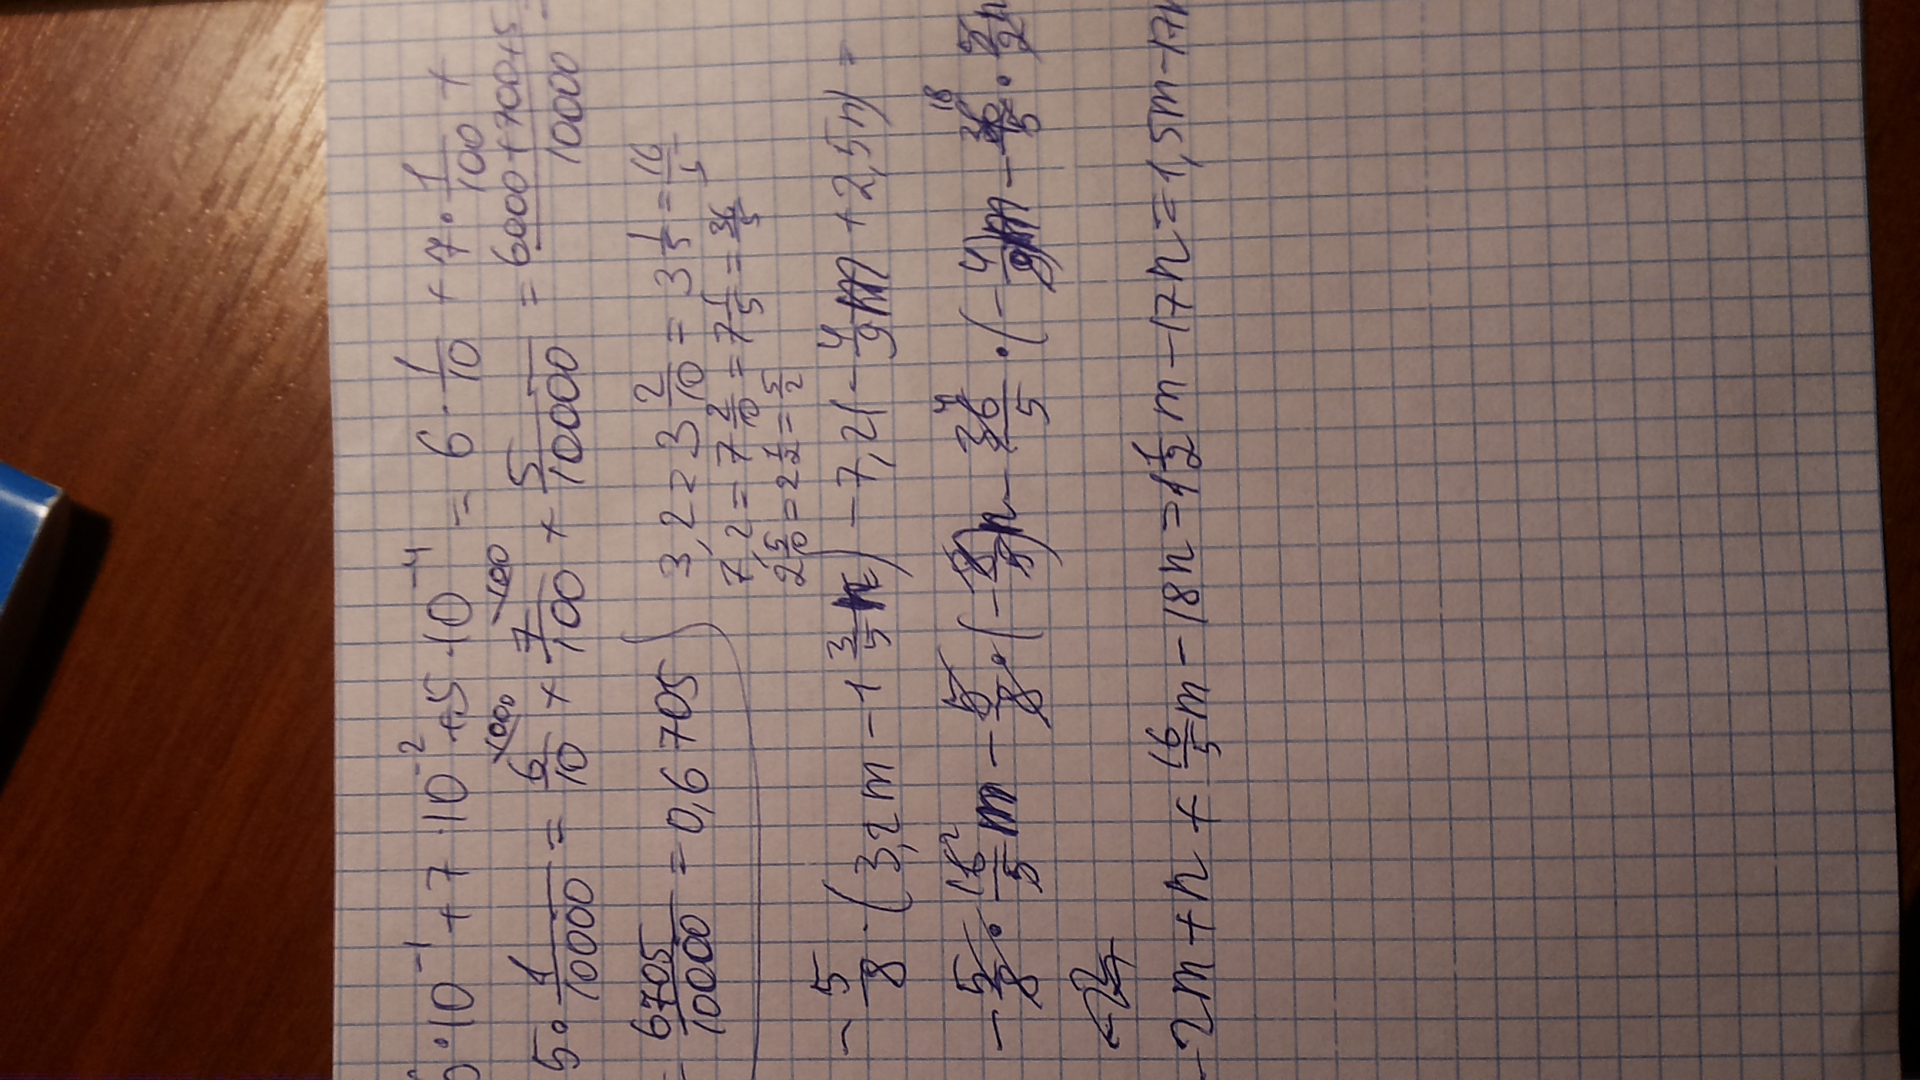 6·10⁻¹ + 7·10⁻² + 5·10⁻⁴ = 6·1/10 + 7·1/100 +
5·1/10000 = 6/10 + 7/100 + 5/10000 = 6000+700+5/10000
6705/10000 = 0,6705
3,2 = 3 2/10 = 3 1/5 = 16/5
7,2 = 7 2/10 = 7 1/5 = 36/5
2 5/10 = 2 1/2 = 5/2
- 5/8·(3,2m - 1 3/5 n) - 7,2(-4/9 m + 2,5n) =
- 5/8 · 16/5 m - 5/8·(-8/5)n - 36/5·(-4/9)m - 36/5 · 5/2 n
-2m + n + 16/5 m - 18n = 1 1/2 m - 17n = 1,5m - 17n